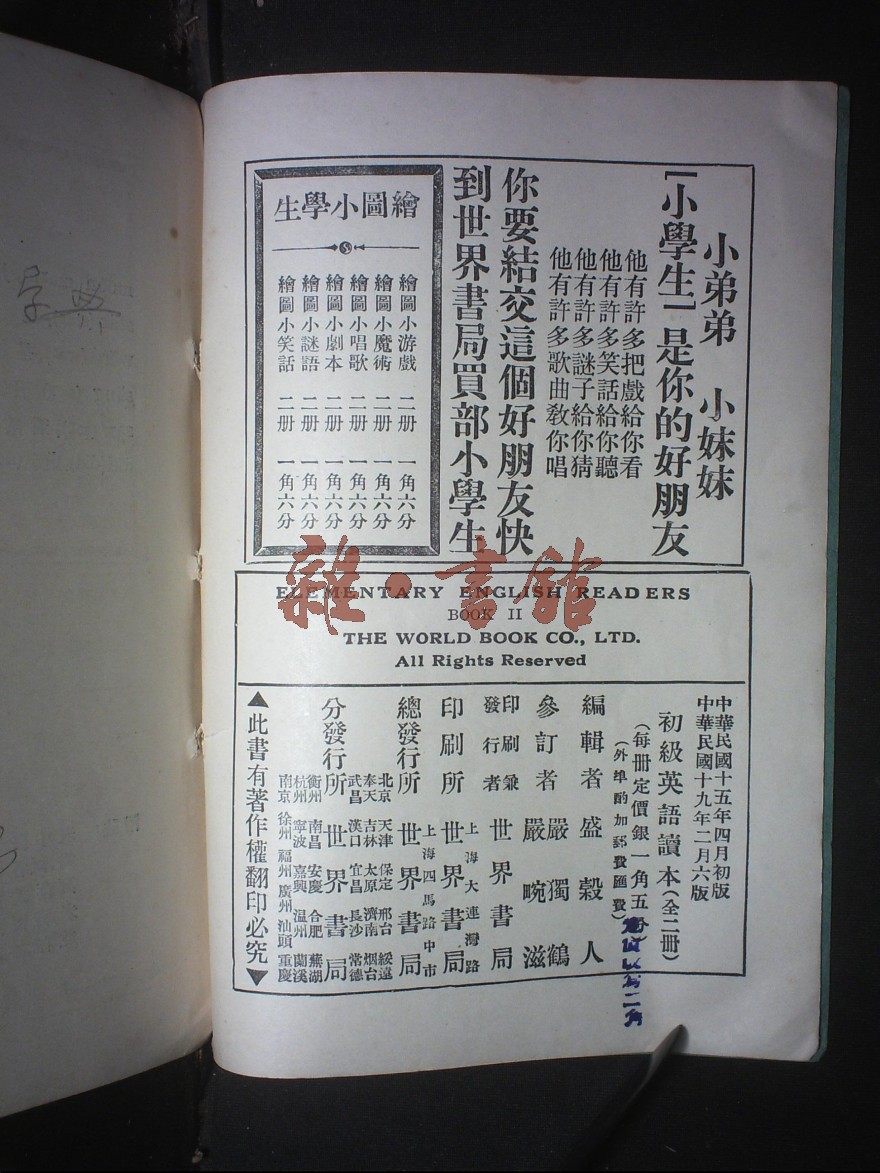 小弟弟 小妹妹
[小學生]是你的好朋友
他有許多把戲給你看
他有許多笑話給你聽
他有許多謎子給你猜
他有許多歌曲敎你唱
你要結交這個好朋友快
到世界書局買部小學生
繪圖小學生
繪圖小游戲 二册 一角六分
繪圖小魔術 二册 一角六分
繪圖小唱歌 二册 一角六分
繪圖小劇本 二册 一角六分
繪圖小謎語 二册 一角六分
繪圖小笑話 二册 一角六分
雜·書館
ELEMENTARY ENGLISH READERS
BOOK II
THE WORLD BOOK CO., LTD.
All Rights Reserved
中華民國十五年四月初版
中華民國十九年二月六版
初級英語讀本(全二册)
(每册定價銀一角五分)
(外埠酌加郵費匯費)
編輯者 盛穀人
參訂者 嚴獨鶴
嚴畹滋
印刷兼
發行者 世界書局
上海大連灣路
印刷所 世界書局
上海四馬路中市
總發行所 世界書局
北京 天津 保定 邢台 綏遠
奉天 吉林 太原 濟南 烟台
武昌 漢口 宜昌 長沙 常德
分發行所 世界書局
衡州 南昌 安慶 合肥 蕪湖
杭州 寧波 嘉興 温州 蘭溪
南京 徐州 福州 廣州 汕頭 重慶
▲此書有著作權翻印必究▼